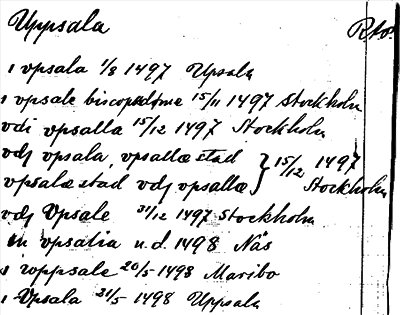 Uppsala Rto.
i vpsala 1/8 1497 Upsala
i vpsale biscopsdøme 15/11 1497 Stockholm
vdi vpsalla 15/12 1497 Stockholm
vdj vpsala, vpsallæ stad } 15/12 1497
vpsalæ stad vdj vpsallæ Stockholm
vdj Vpsale 31/12 1497 Stockholm
in vpsatia u.d. 1498 Näs
i woppsale 20/5 1498 Maribo
i Vpsala 21/5 1498 Uppsala